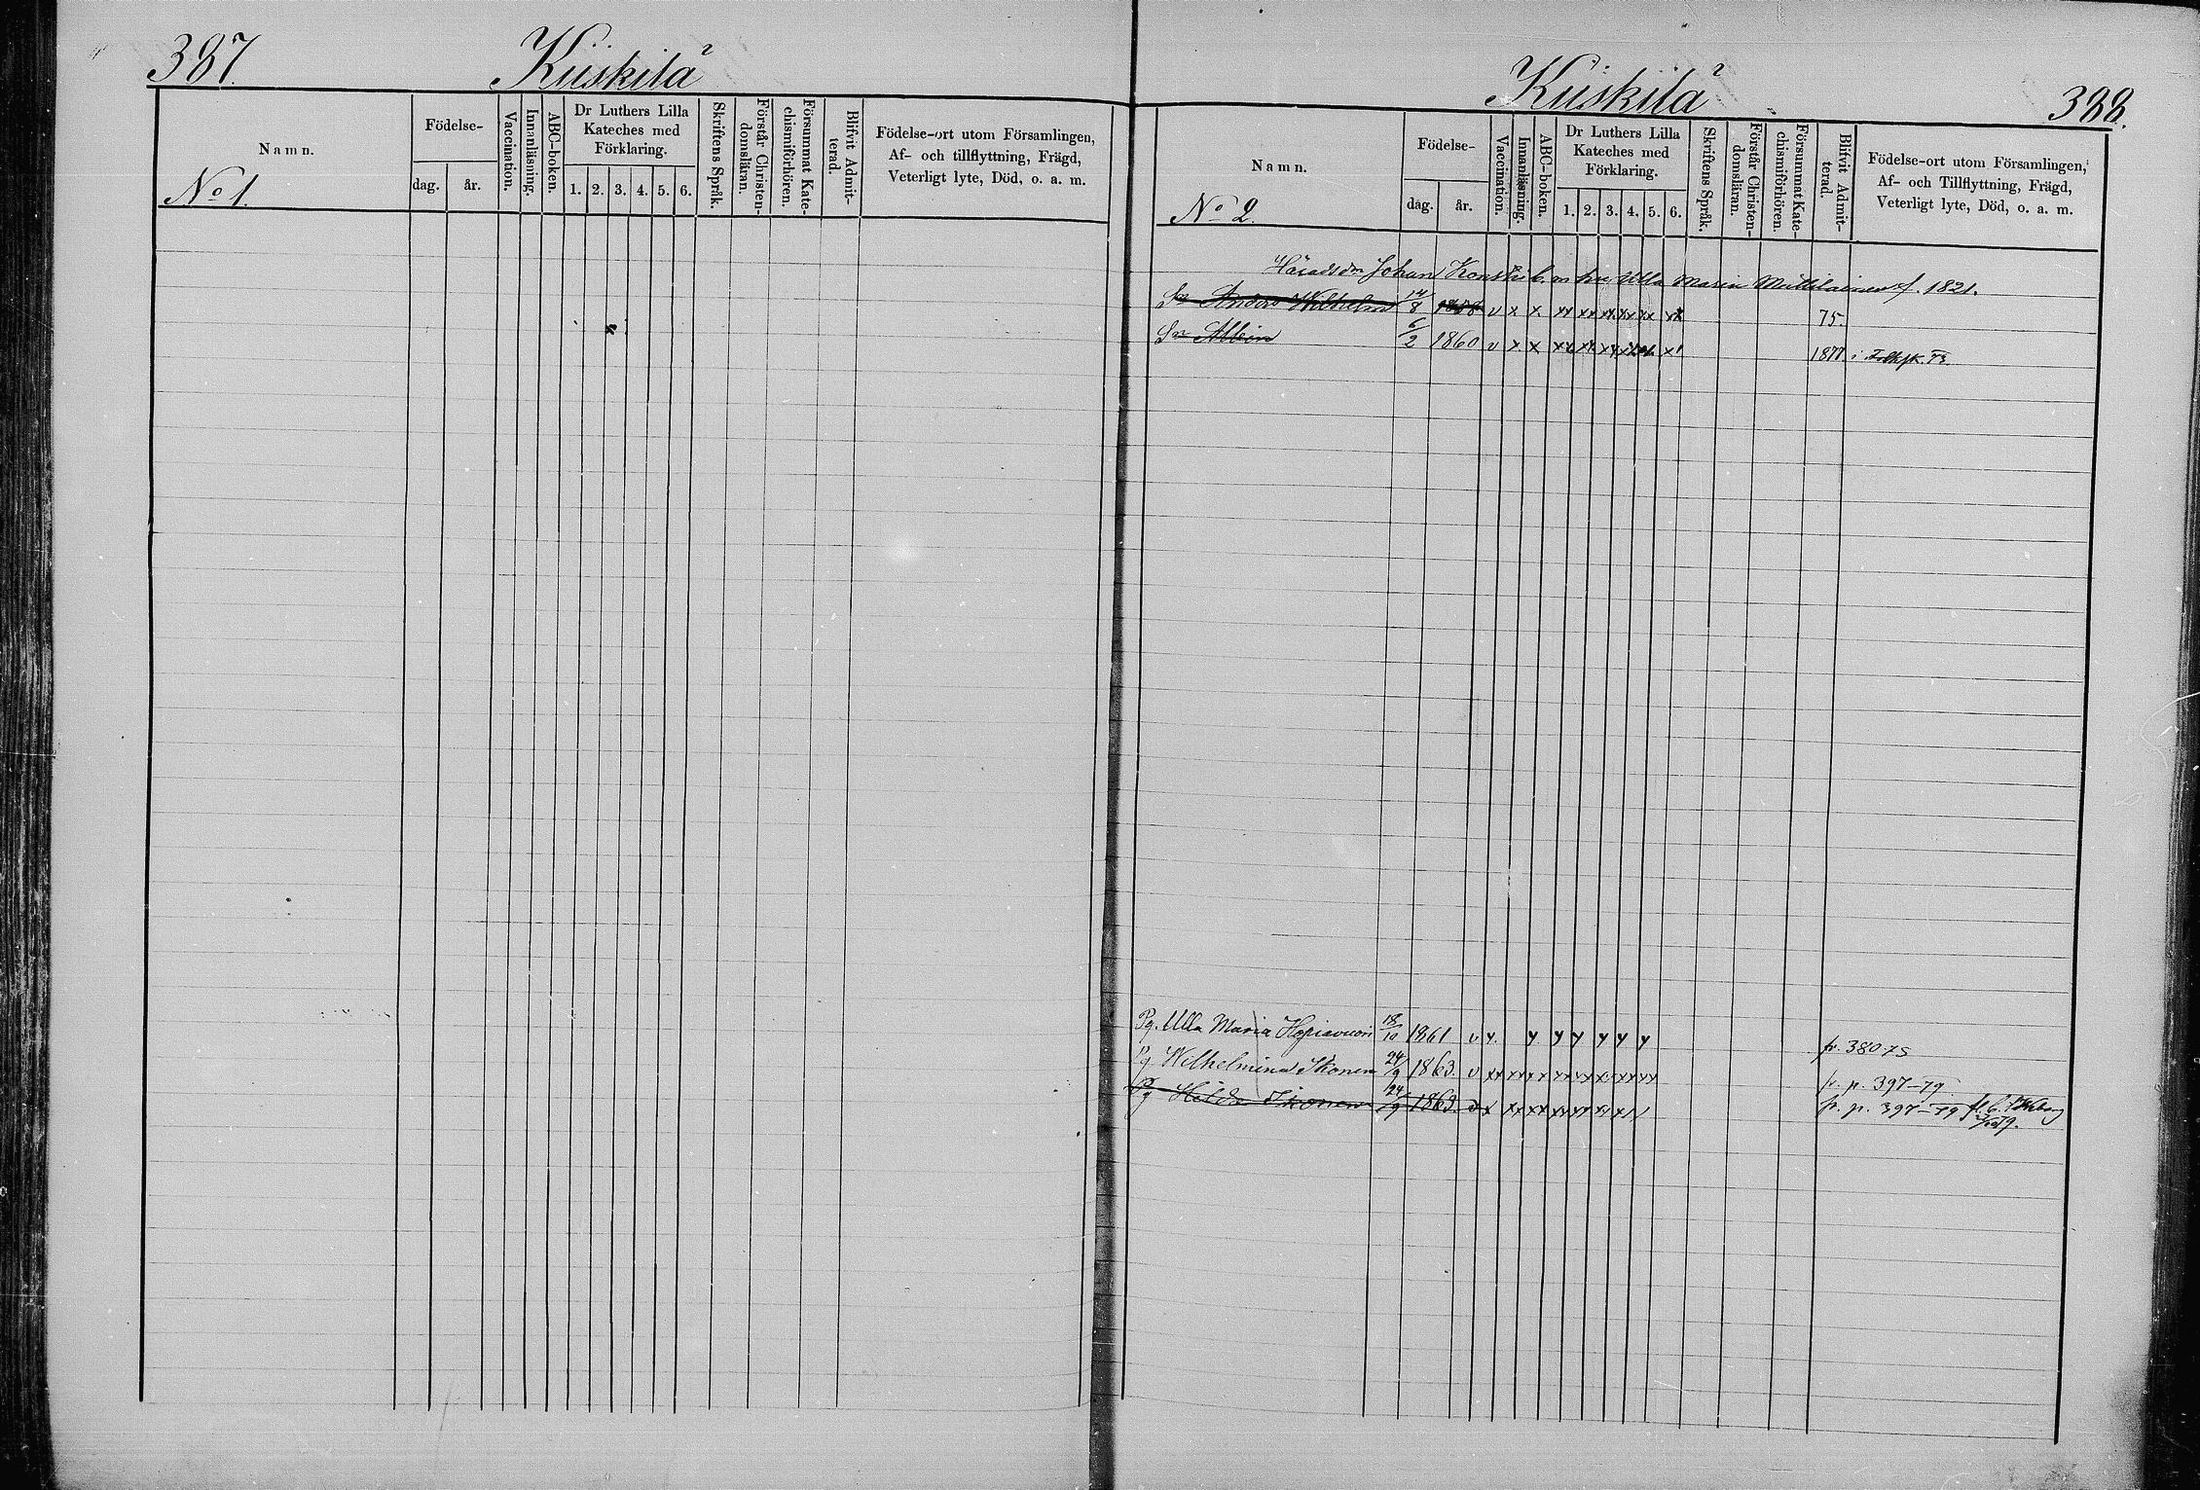 387.
Kiiskilä
Namn.
Födelse-
dag. år.
Vaccination.
Innanläsning.
ABC-boken.
Dr Luthers Lilla
Kateches med
Förklaring.
1. 2. 3. 4. 5. 6.
Skriftens Språk.
Förstår Christen-
domsläran.
Försummat Kate-
chismiförhören.
Blifvit Admit-
terad.
Födelse-ort utom Församlingen,
Af- och tillflyttning, Frägd,
Veterligt lyte, Död, o. a. m.
No 1.
Kiiskilä
388.
Namn.
Födelse-
dag. år.
Vaccination.
Innanläsning.
ABC-boken.
Dr Luthers Lilla
Kateches med
Förklaring.
1. 2. 3. 4. 5. 6.
Skriftens Språk.
Förstår Christen-
domsläran.
Försummat Kate-
chismiförhören.
Blifvit Admit-
terad.
Födelse-ort utom Församlingen,
Af- och Tillflyttning, Frägd,
Veterligt lyte, Död, o. a. m.
No 2.
Johan hu Ulla Maria f. 1821.
Sn Anders Wilhelm 14/8 v x x xx xx xx xx xx 75.
Sn Albin 6/2 1860 v x x 1877
Pg. Ulla Maria 18/10 1861 v y. y y y y y y fr. 380 75
Pg Wilhelmina Ikonen 24/9 1863. v fr. p. 397-79
Pg Hilda Ikonen 24/9 1863. v x fr. p. 397-79